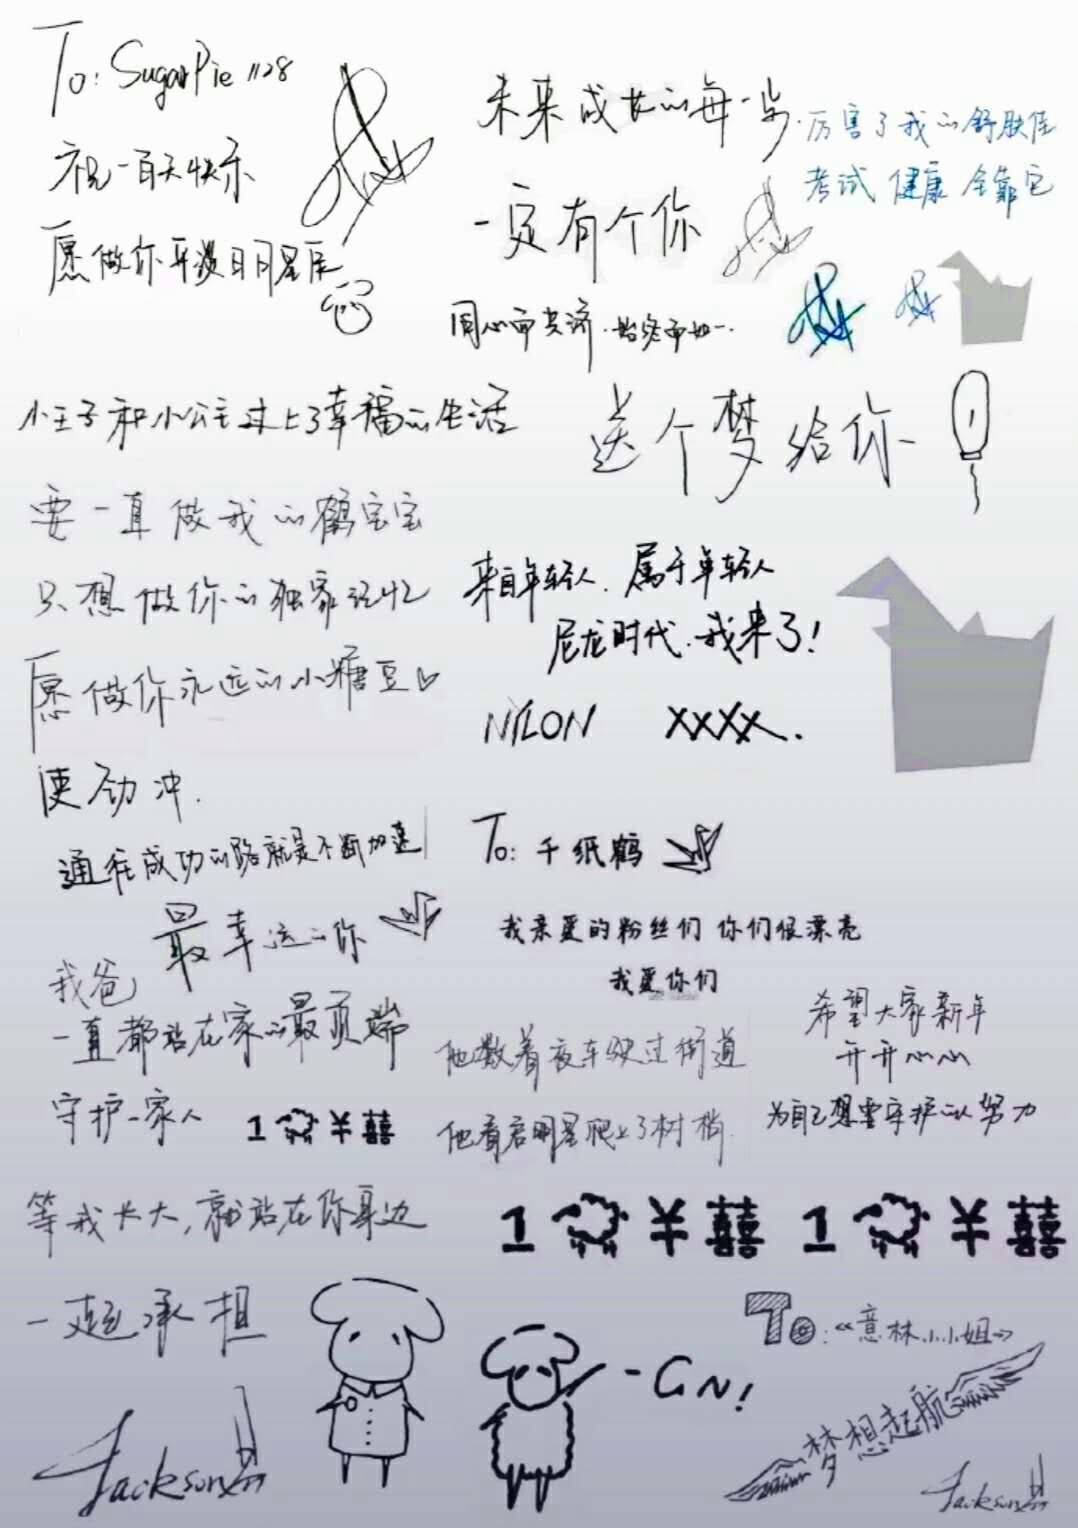 To: SugarPie 1128
祝一百天快乐
愿做你平淡日子星辰
未来成长的每一步
一定有个你
同心而共济·始终而如一.
厉害了我的舒肤佳
考试 健康 全靠它
小王子和小公主过上了幸福的生活
送个梦给你
要一直做我的鹤宝宝
只想做你的独家记忆
愿做你永远的小糖豆♡
使劲冲.
来自年轻人. 属于年轻人
尼龙时代.我来了!
NYLON XXXX.
通往成功的路就是不断加速
最幸运的你
To: 千纸鹤
我亲爱的粉丝们 你们很漂亮
我爱你们
我爸
一直都站在家的最顶端
守护一家人
1 ¥ 囍
等我长大,就站在你身边
一起承担
他数着夜车驶过街道
他看启明星爬上了树梢.
希望大家新年
开开心心
为自己想要守护的人努力
1 ¥ 囍 1 ¥ 囍
-GN!
To:《意林小小姐》
梦想起航
Jackson
Jackson